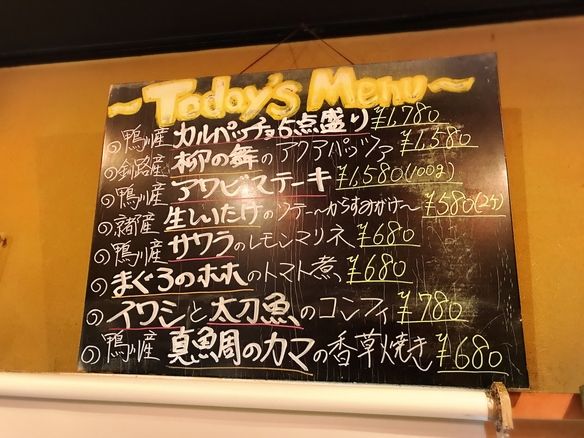 ~Today's Menu~
の鴨川産 カルパッチョ5点盛り ¥1,780
の釧路産 柳の舞のアクアパッツァ ¥1,580
の鴨川産 アワビステーキ ¥1,580(100g)
の京都産 生しいたけのソテー~からすみがけ~ ¥580(2ケ)
の鴨川産 サワラのレモンマリネ ¥680
の まぐろのホホのトマト煮 ¥680
の イワシと太刀魚のコンフィ ¥780
の鴨川産 真鯛のカマの香草焼き ¥680